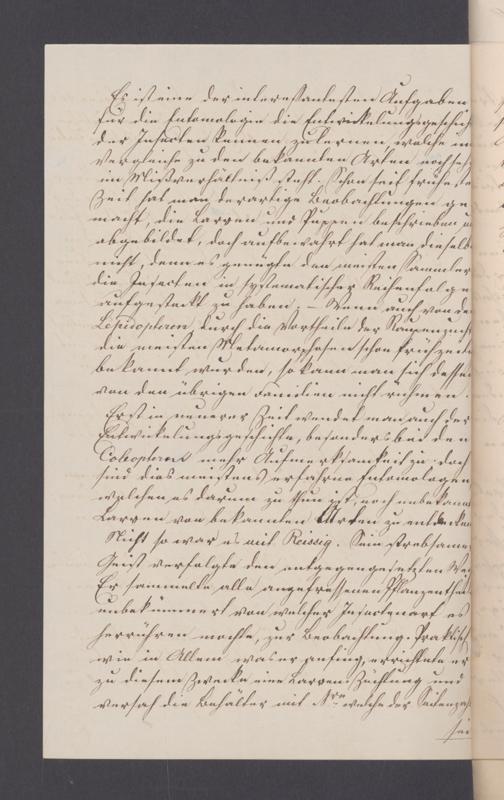 Es ist eine der interessantesten Aufgaben
für die Entomologie die Entwickelungsgeschich
der Insecten kennen zu lernen, welche im
Vergleiche zu den bekannten Arten noch sehr
im Mißverhältniß steht. Schon seit frühester
Zeit hat man derartige Beobachtungen ge
macht, die Larven und Puppen beschrieben u
abgebildet, doch aufbewahrt hat man dieselb
nicht, denn es genügte den meisten Sammler
die Insecten in systematischer Reihenfolge
aufgesteckt zu haben. – Wenn auch von den
Lepidopteren durch die Vortheile der Raupenzucht
die meisten Metamorphosen schon frühzeiti
bekannt wurden, so kann man sich dessen
von den übrigen Familien nicht rühmen.
Erst in neuerer Zeit wendet man auch der
Entwickelungsgeschichte, besonders bei den
Coleopteren mehr Aufmerksamkeit zu doch
sind dies meistens erfahrne Entomologen
welchen es darum zu thun ist, noch unbekannte
Larven von bekannten Arten zu entdecken
Nicht so war es mit Reissig. Sein strebsamer
Geist verfolgte den entgegengesetzten Weg
Er sammelte alle angefressenen Pflanzentheile
unbekümmert von welcher Insectenart es
herrühren mochte, zur Beobachtung. Praktisch
wie in Allem was er anfing, errichtete er
zu diesem Zwecke eine Larven Züchtung und
versah die Behälter mit Nro welche der Seitenzahl
sei